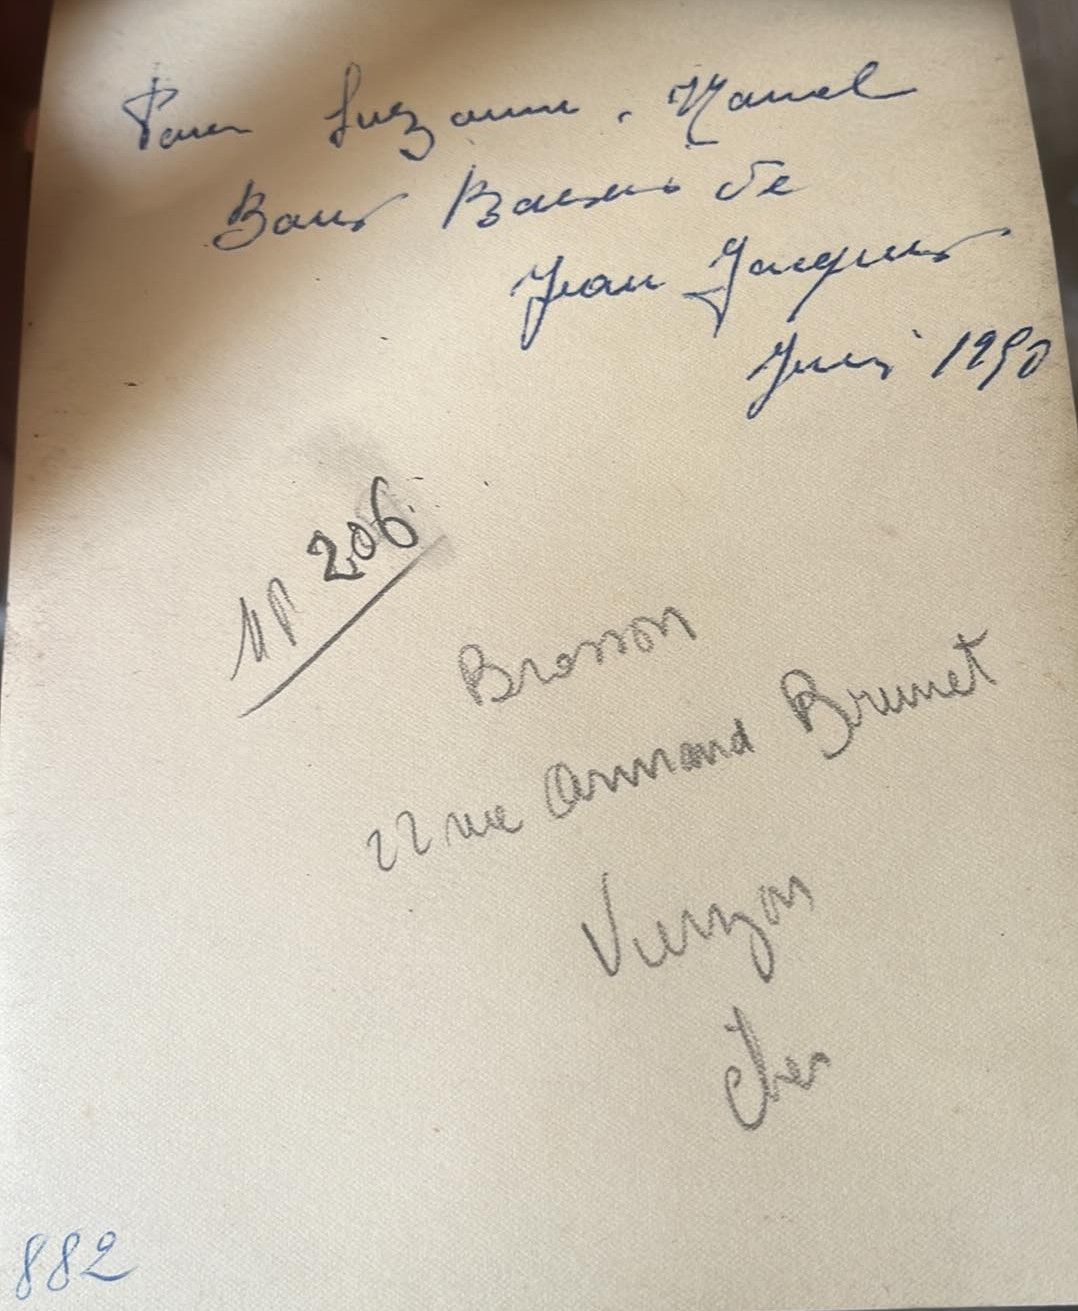 Pour Suzanne. Marcel
Bons Baisers de
Jean Jacques
Juin 1950
206
Brosson
22 rue Armand Brunet
Vierzon
Cher
882